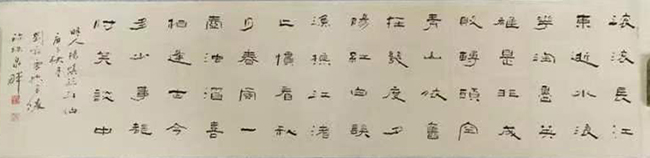 滚滚長江
東逝水浪
華淘盡英
雄是非成
敗轉頭空
青山依舊
在幾度夕
陽紅白髮
漁樵江渚
上慣看秋
月春風一
壺濁酒喜
相逢古今
多少事都
付笑談中
明人楊慎臨江仙
庚子秋月